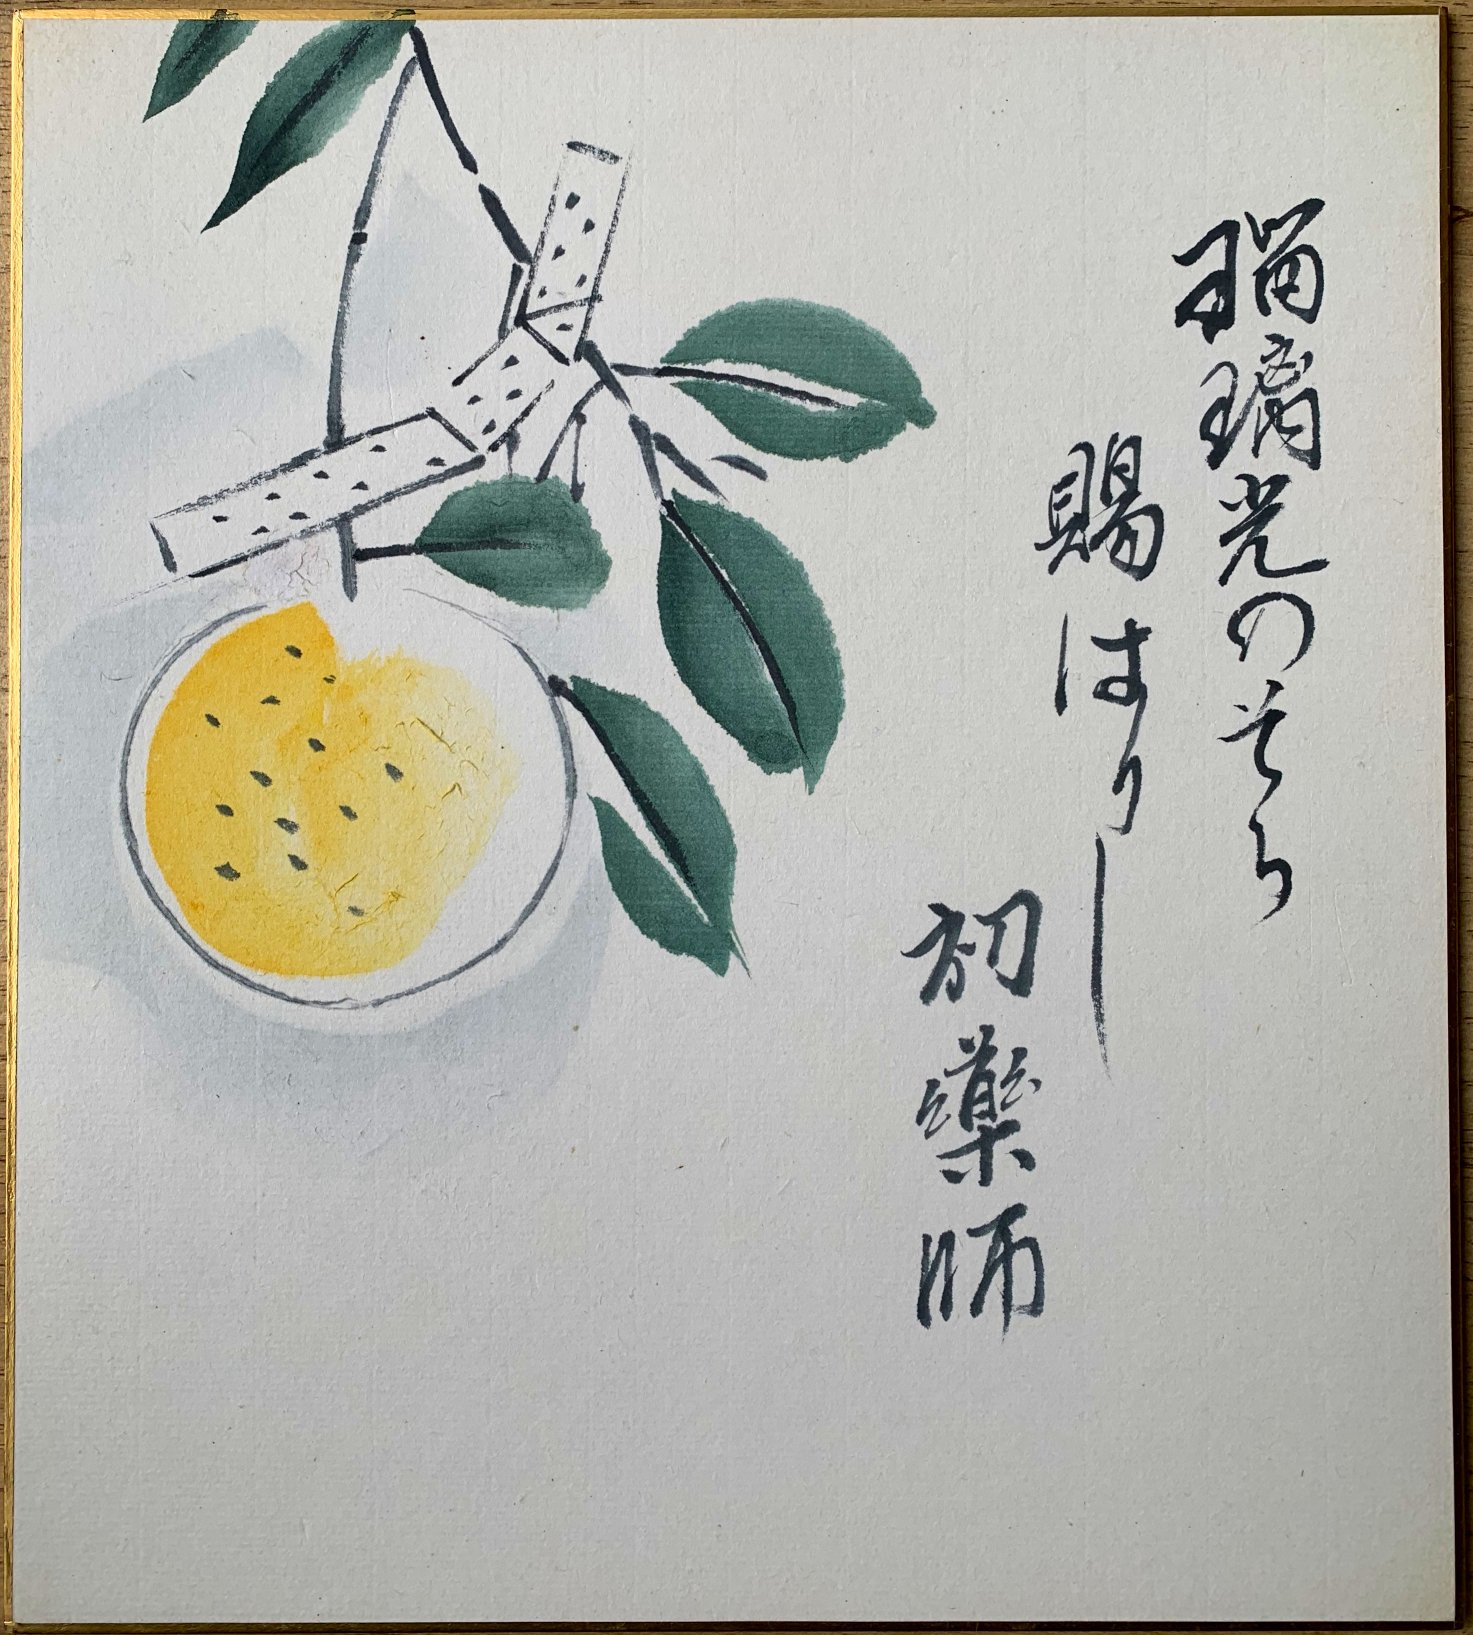 瑠璃光のそら
賜はりし
初薬師